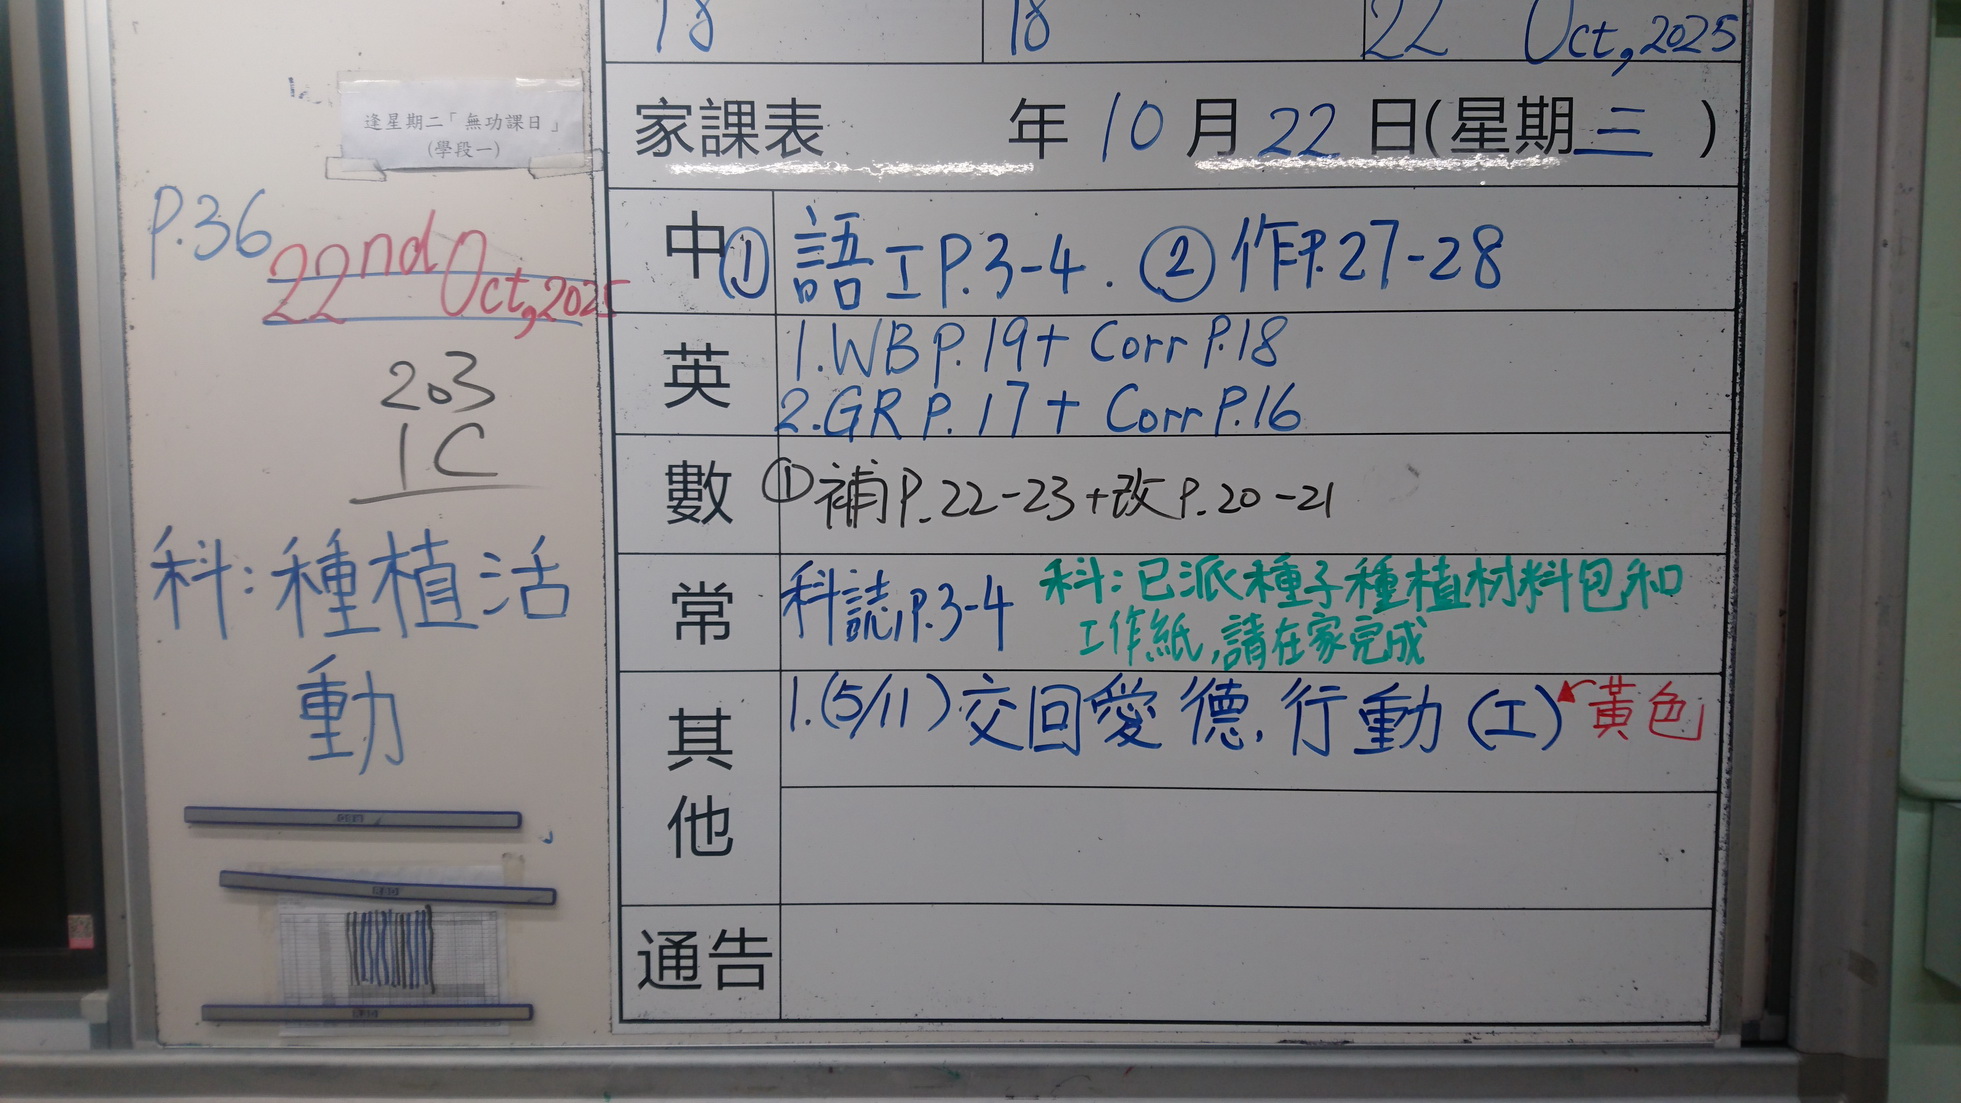 18 18 22 Oct, 2025
逢星期二「無功課日」
(學段一)
家課表 年 10 月 22 日(星期三)
P.36
22nd Oct, 2025
203
1C
科:種植活
動
中 ① 語工P.3-4. ② 作P.27-28
英 1.WB P.19+ Corr P.18
2.GR P.17+ Corr P.16
數 ①補P.22-23+改P.20-21
常 科誌P.3-4 科:已派種子種植材料包和
工作紙,請在家完成
其他 1.(5/11)交回愛德.行動(工) 黃色
通告